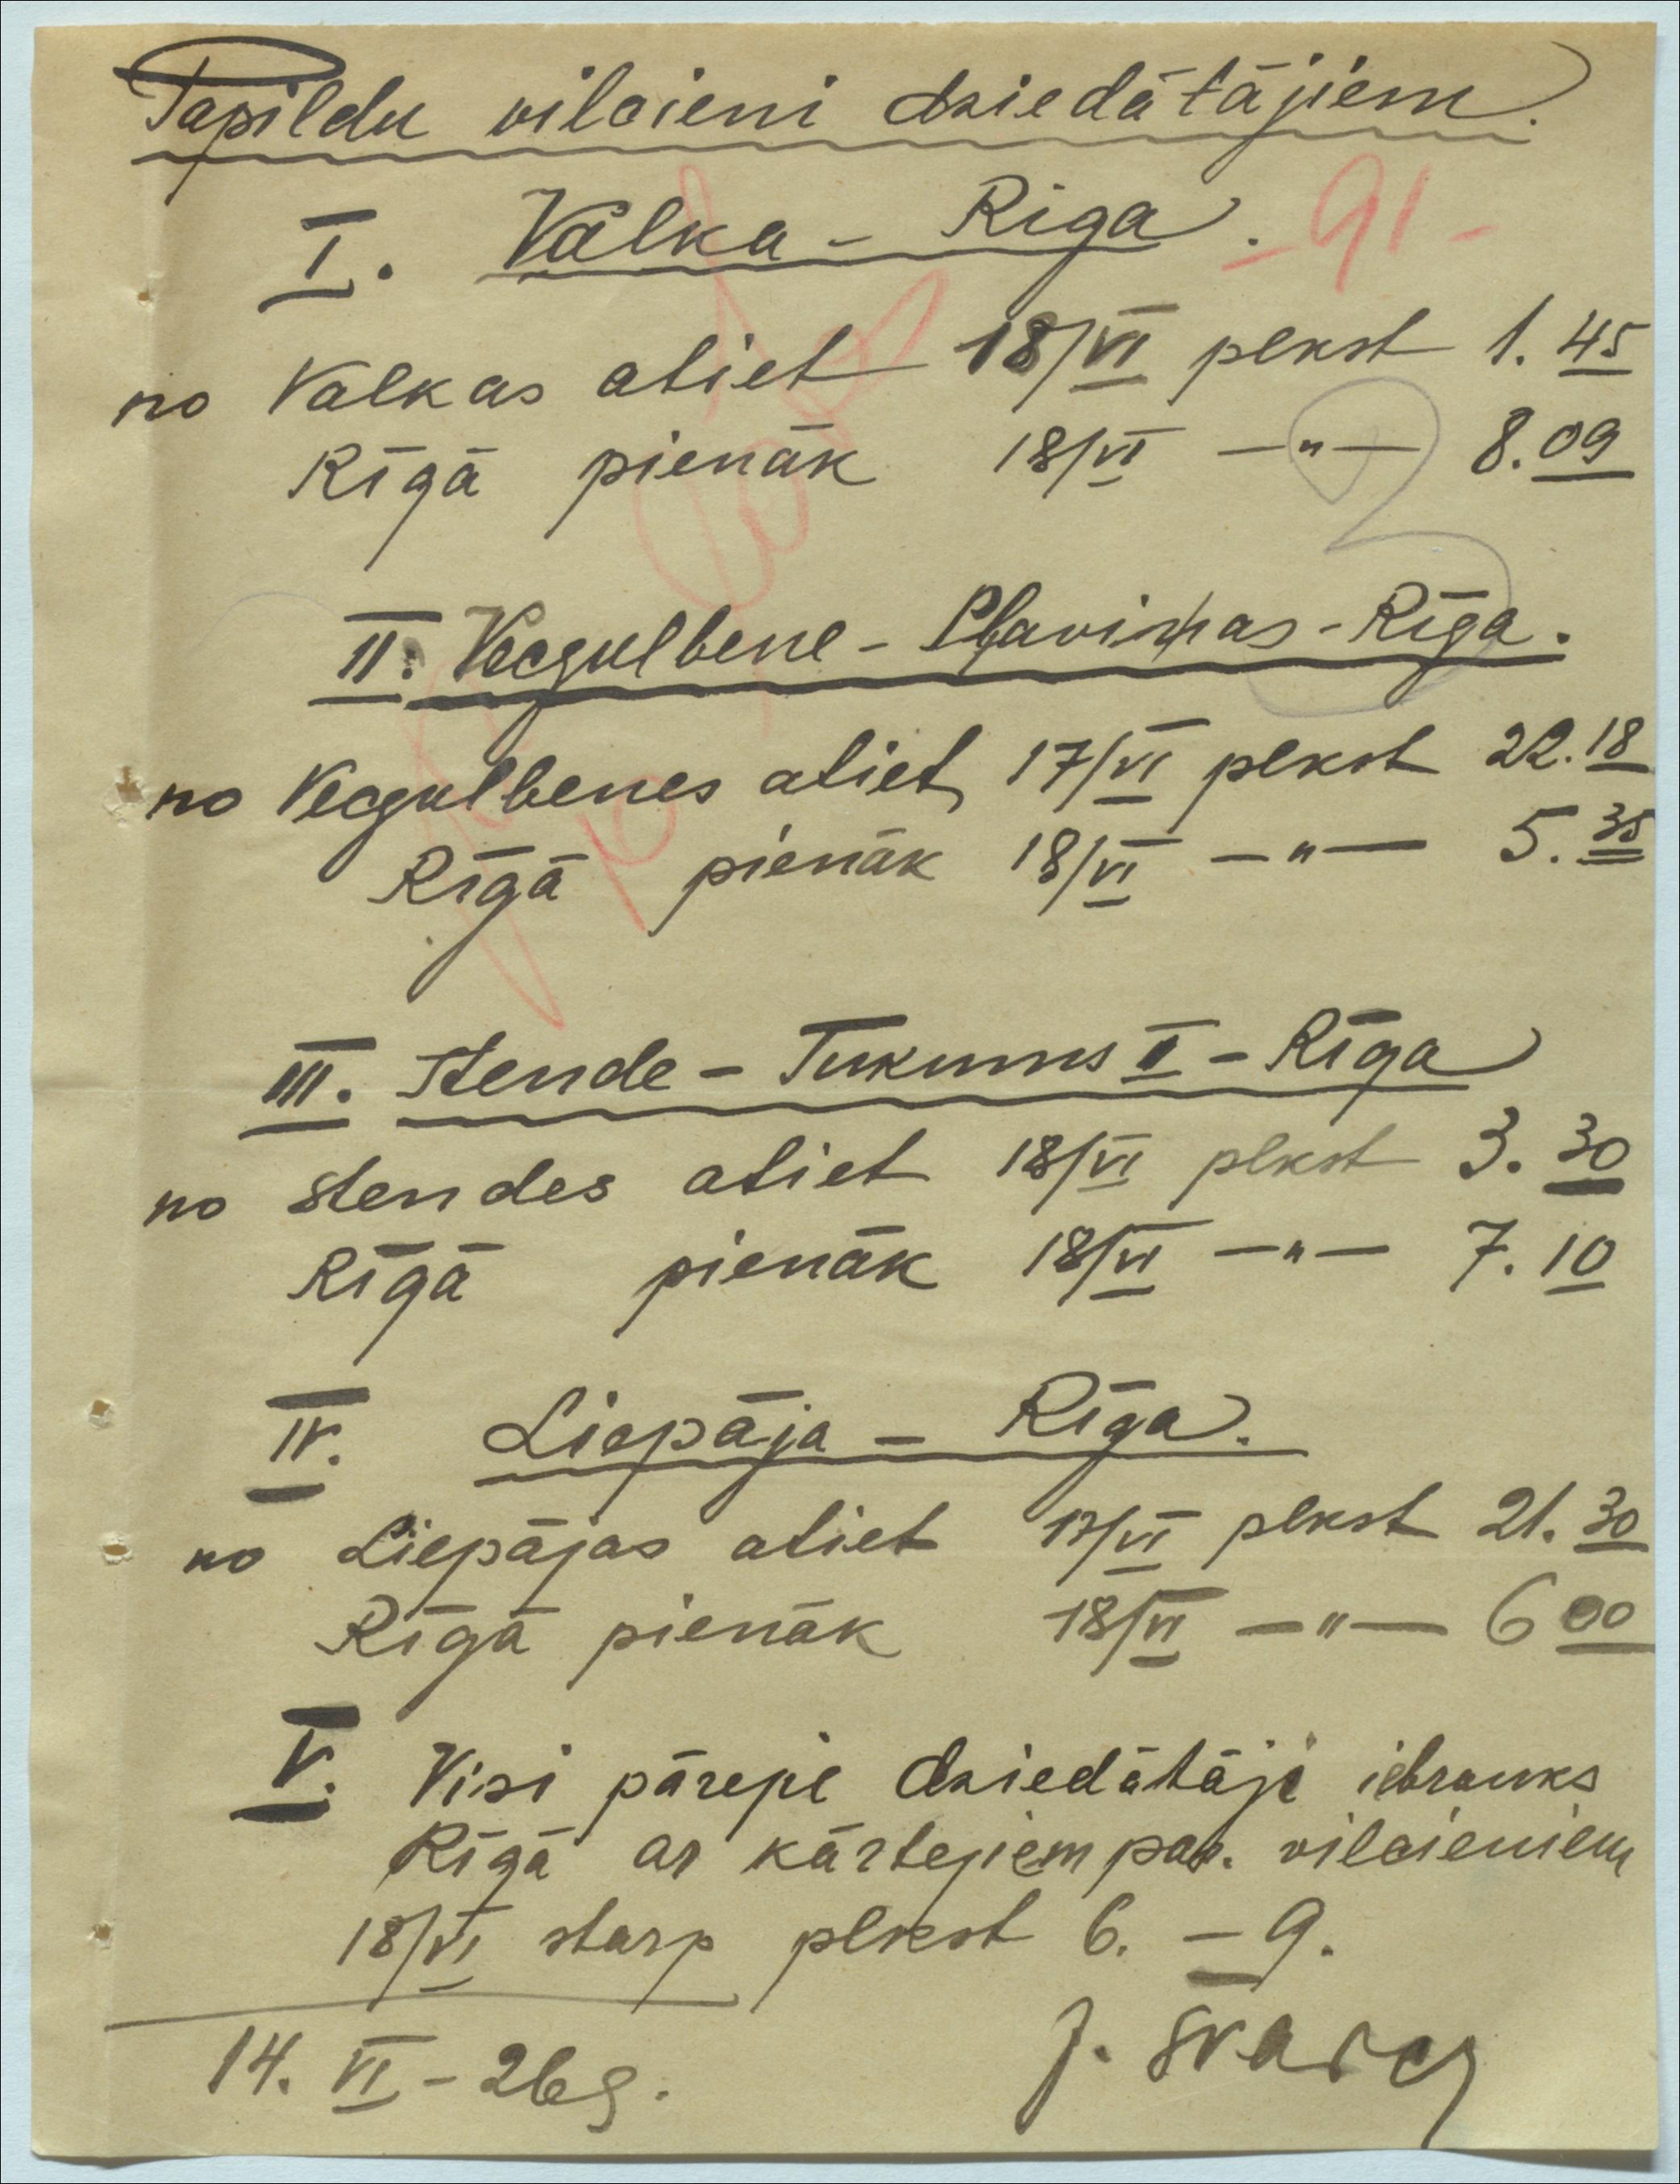 Papildu vilcieni dziedātājiem.
I. Valka - Rīga.
- 91 -
no Valkas atiet 18/VI plkst 1.45
Rīgā pienāk 18/VI —"— 8.09
II. Vecgulbene - Pļaviņas - Rīga.
no Vecgulbenes atiet 17/VI plkst 22.18
Rīgā pienāk 18/VI —"— 5.35
III. Stende - Tukums II - Rīga
no Stendes atiet 18/VI plkst 3.30
Rīgā pienāk 18/VI —"— 7.10
IV. Liepāja - Rīga.
no Liepājas atiet 17/VI plkst 21.30
Rīgā pienāk 18/VI —"— 6 00
V. Visi pārejie dziedātāji iebrauks
Rīgā ar kārtejiem pas. vilcieniem
18/VI starp plkst 6. - 9.
14. VI - 26 g.
J. Švarcs